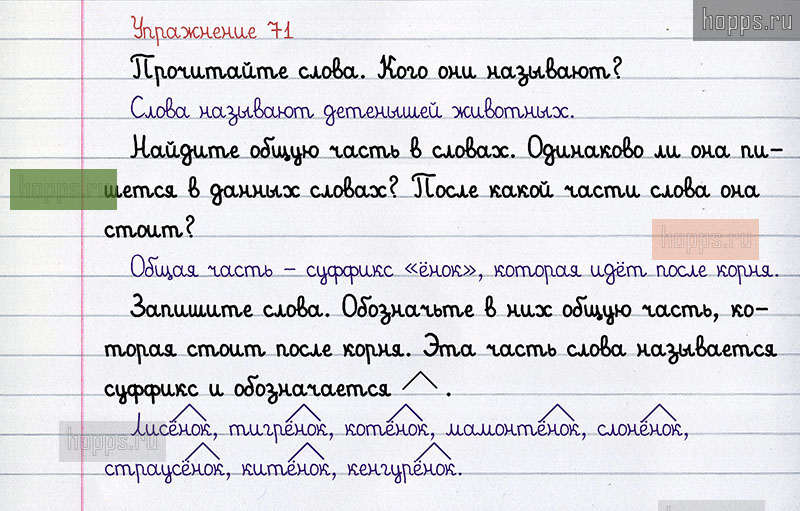 hopps.ru
Упражнение 71
Прочитайте слова. Кого они называют?
Слова называют детенышей животных.
Найдите общую часть в словах. Одинаково ли она пи-
hopps.ru
шется в данных словах? После какой части слова она
стоит?
hopps.ru
Общая часть – суффикс «ёнок», которая идёт после корня.
Запишите слова. Обозначьте в них общую часть, ко-
торая стоит после корня. Эта часть слова называется
суффикс и обозначается ^ .
Лисёнок, тигрёнок, котёнок, мамонтёнок, слонёнок,
hopps.ru
страусёнок, китёнок, кенгурёнок.